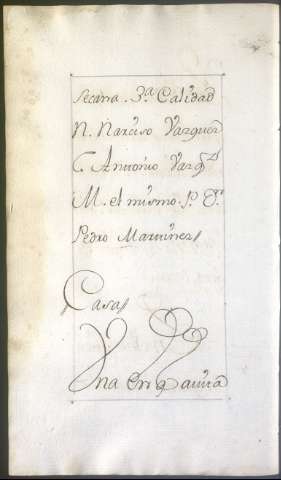 secana. 3.ª Calidad
N. Narciso Vazquez
C. Antonio Vazq.z
M. el mismo. P. Dr.
Pedro Martinez//
Casa//
Vna en q.e avita